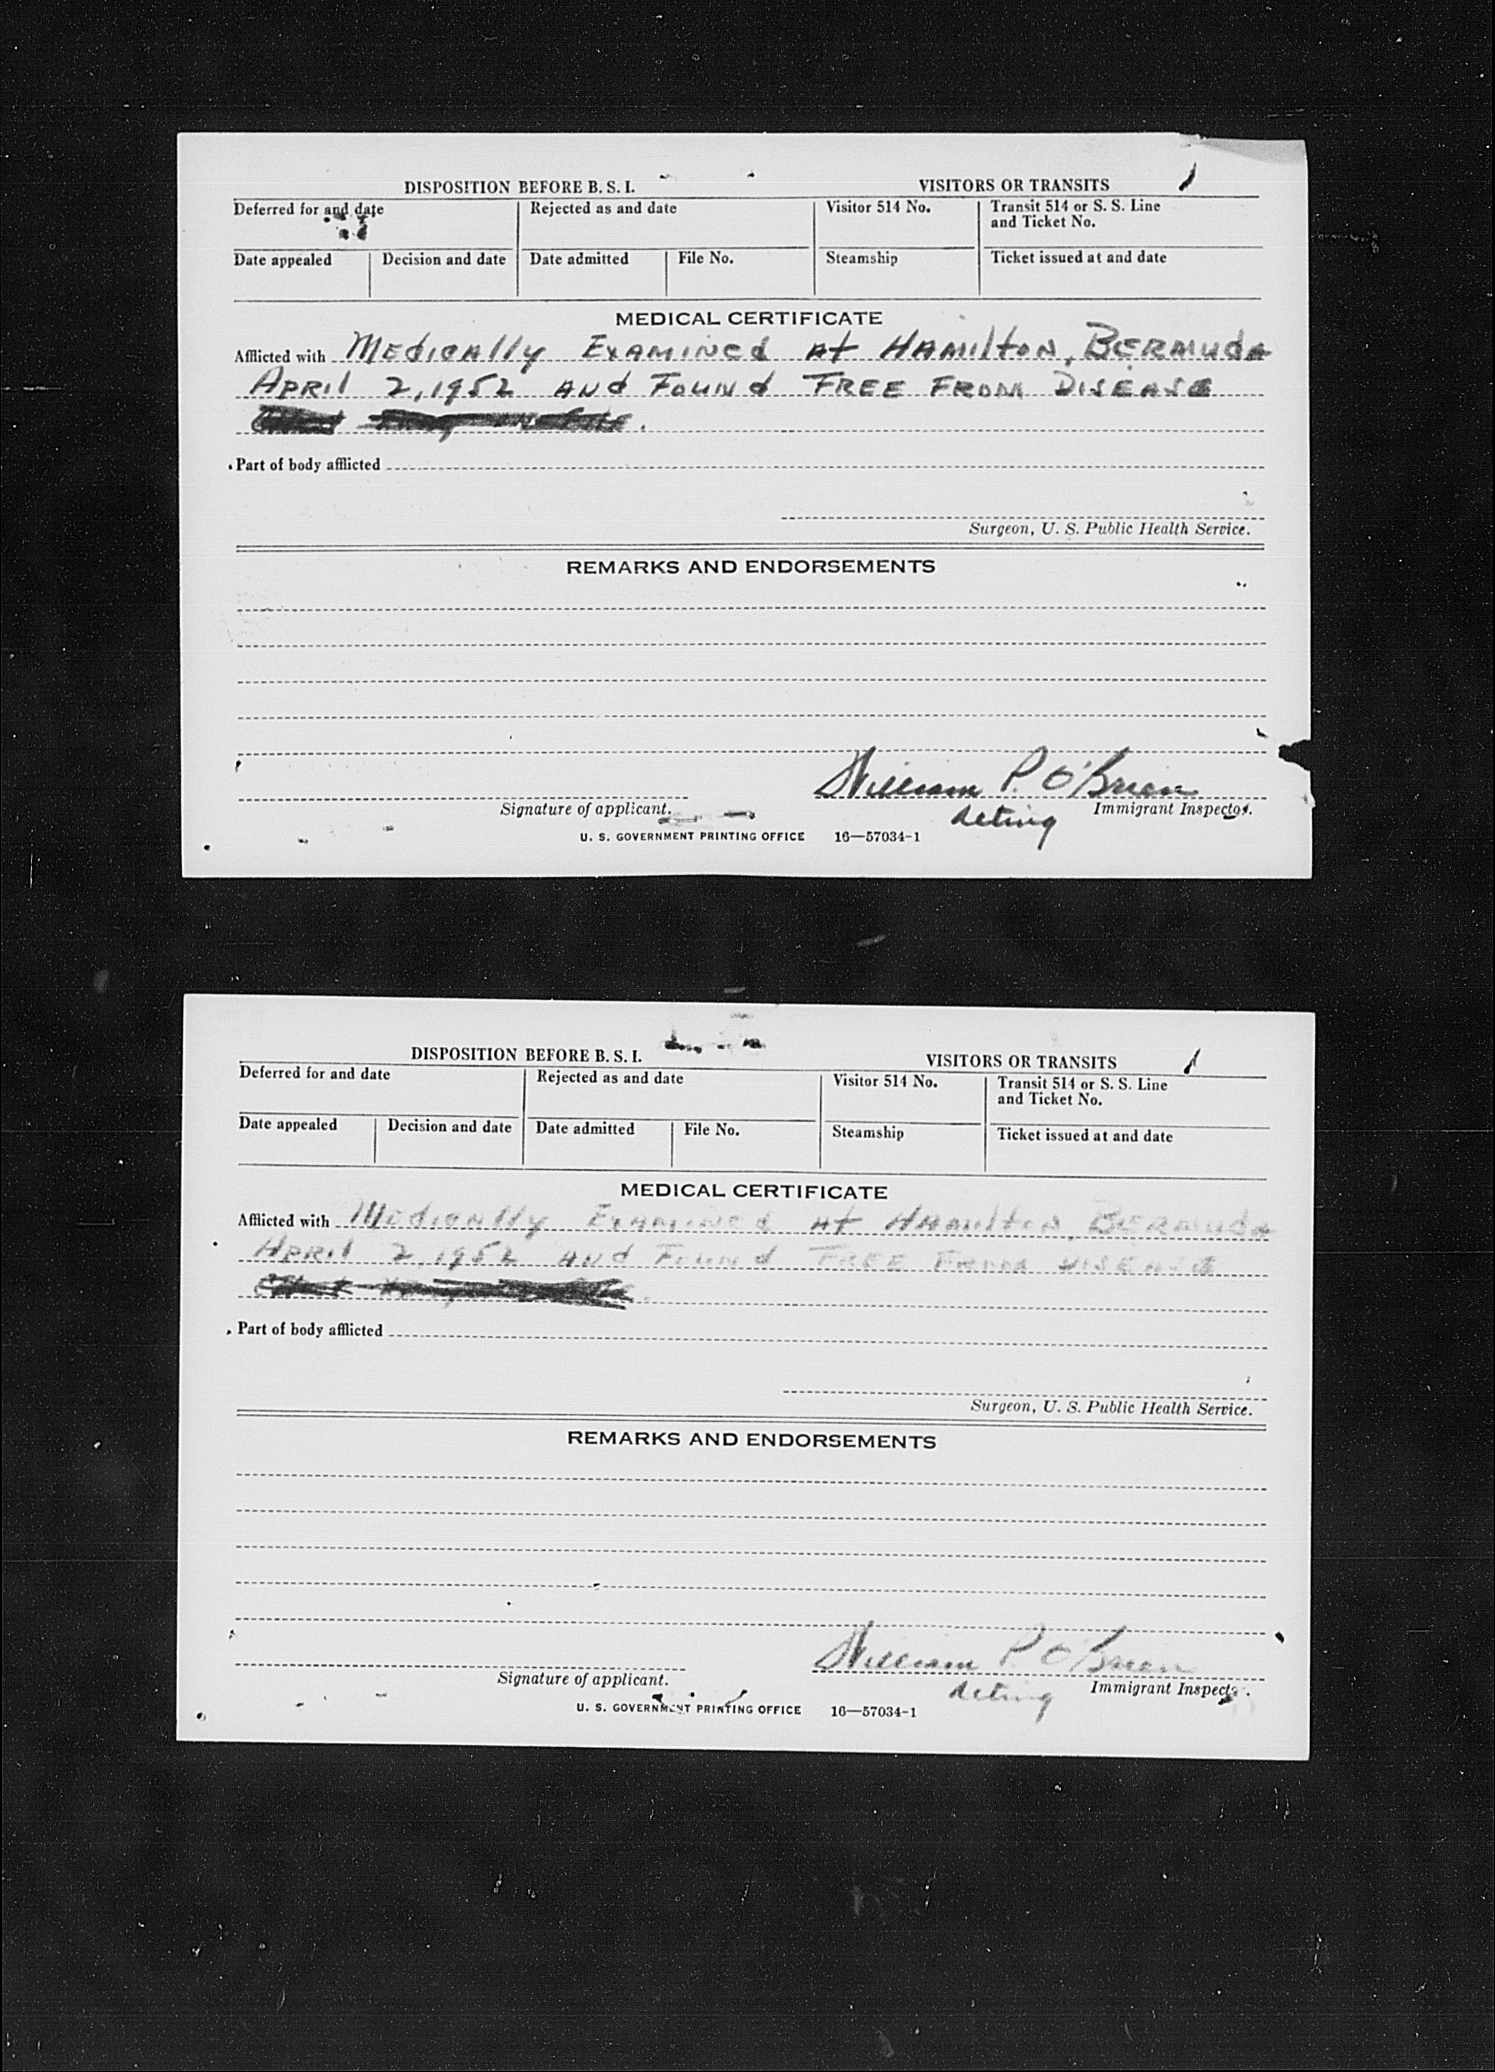 DISPOSITION BEFORE B. S. I. VISITORS OR TRANSITS
Deferred for and date Rejected as and date Visitor 514 No. Transit 514 or S. S. Line
and Ticket No.
Date appealed Decision and date Date admitted File No. Steamship Ticket issued at and date
MEDICAL CERTIFICATE
Afflicted with Medically Examined at Hamilton, Bermuda
April 2, 1952 and Found Free From Disease
Part of body afflicted
Surgeon, U. S. Public Health Service.
REMARKS AND ENDORSEMENTS
William P. O'Brien
Signature of applicant. Acting Immigrant Inspector.
U. S. GOVERNMENT PRINTING OFFICE 16—57034-1
DISPOSITION BEFORE B. S. I. VISITORS OR TRANSITS
Deferred for and date Rejected as and date Visitor 514 No. Transit 514 or S. S. Line
and Ticket No.
Date appealed Decision and date Date admitted File No. Steamship Ticket issued at and date
MEDICAL CERTIFICATE
Afflicted with Medically Examined at Hamilton, Bermuda
April 2, 1952 and Found Free From Disease
Part of body afflicted
Surgeon, U. S. Public Health Service.
REMARKS AND ENDORSEMENTS
William P. O'Brien
Signature of applicant. Acting Immigrant Inspector.
U. S. GOVERNMENT PRINTING OFFICE 16—57034-1